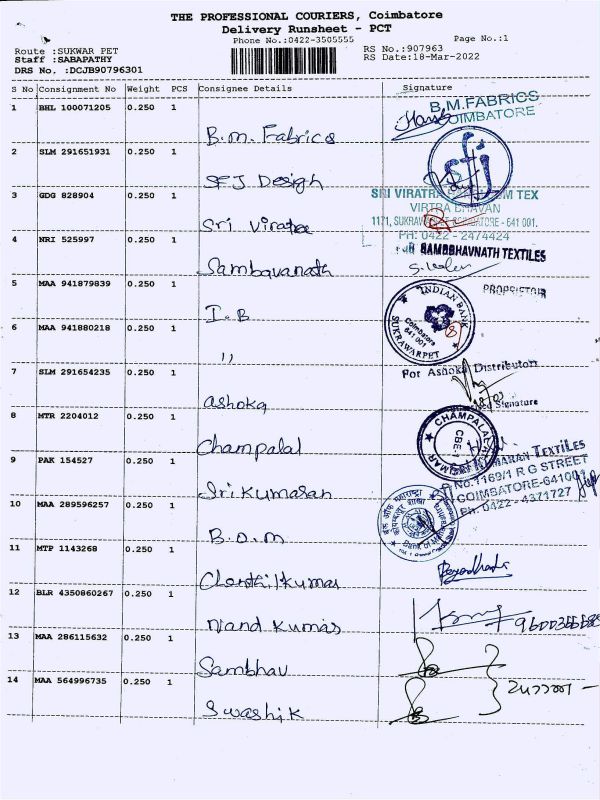 THE PROFESSIONAL COURIERS, Coimbatore
Delivery Runsheet - PCT
Phone No.:0422-3505555
Page No.:1
Route :SUKWAR PET
RS No.:907963
Staff :SABAPATHY
RS Date:18-Mar-2022
DRS No. :DCJB90796301
S No Consignment No Weight PCS Consignee Details Signature
1 BHL 100071205 0.250 1
B.M.FABRICS
COIMBATORE
B.m. Fabrics
2 SLM 291651931 0.250 1
sfj
SFJ Design
3 GDG 828904 0.250 1
SRI VIRATRA TEX
VIRTRA BHAVAN
1171, SUKRAWAR COIMBATORE - 641 001.
PH: 0422 - 2474424
Sri Viratra
4 NRI 525997 0.250 1
SAMBBHAVNATH TEXTILES
Sambavanath
5 MAA 941879839 0.250 1
PROPRIETOR
INDIAN BANK
Coimbatore
641 001
SUKRAWARPET
I.B
6 MAA 941880218 0.250 1
,,
7 SLM 291654235 0.250 1
For Ashoka Distributors
Signature
ashoka
8 MTR 2204012 0.250 1
CBE-1
Champalal
9 PAK 154527 0.250 1
KUMARAN TEXTILES
No.1169/1 R G STREET
COIMBATORE-641001
Ph. 0422 - 4371727
Sri Kumaran
10 MAA 289596257 0.250 1
B.O.M
11 MTP 1143268 0.250 1
Chenthilkumar
12 BLR 4350860267 0.250 1
Nand Kumar
13 MAA 286115632 0.250 1
Sambhav
14 MAA 564996735 0.250 1
Swashik